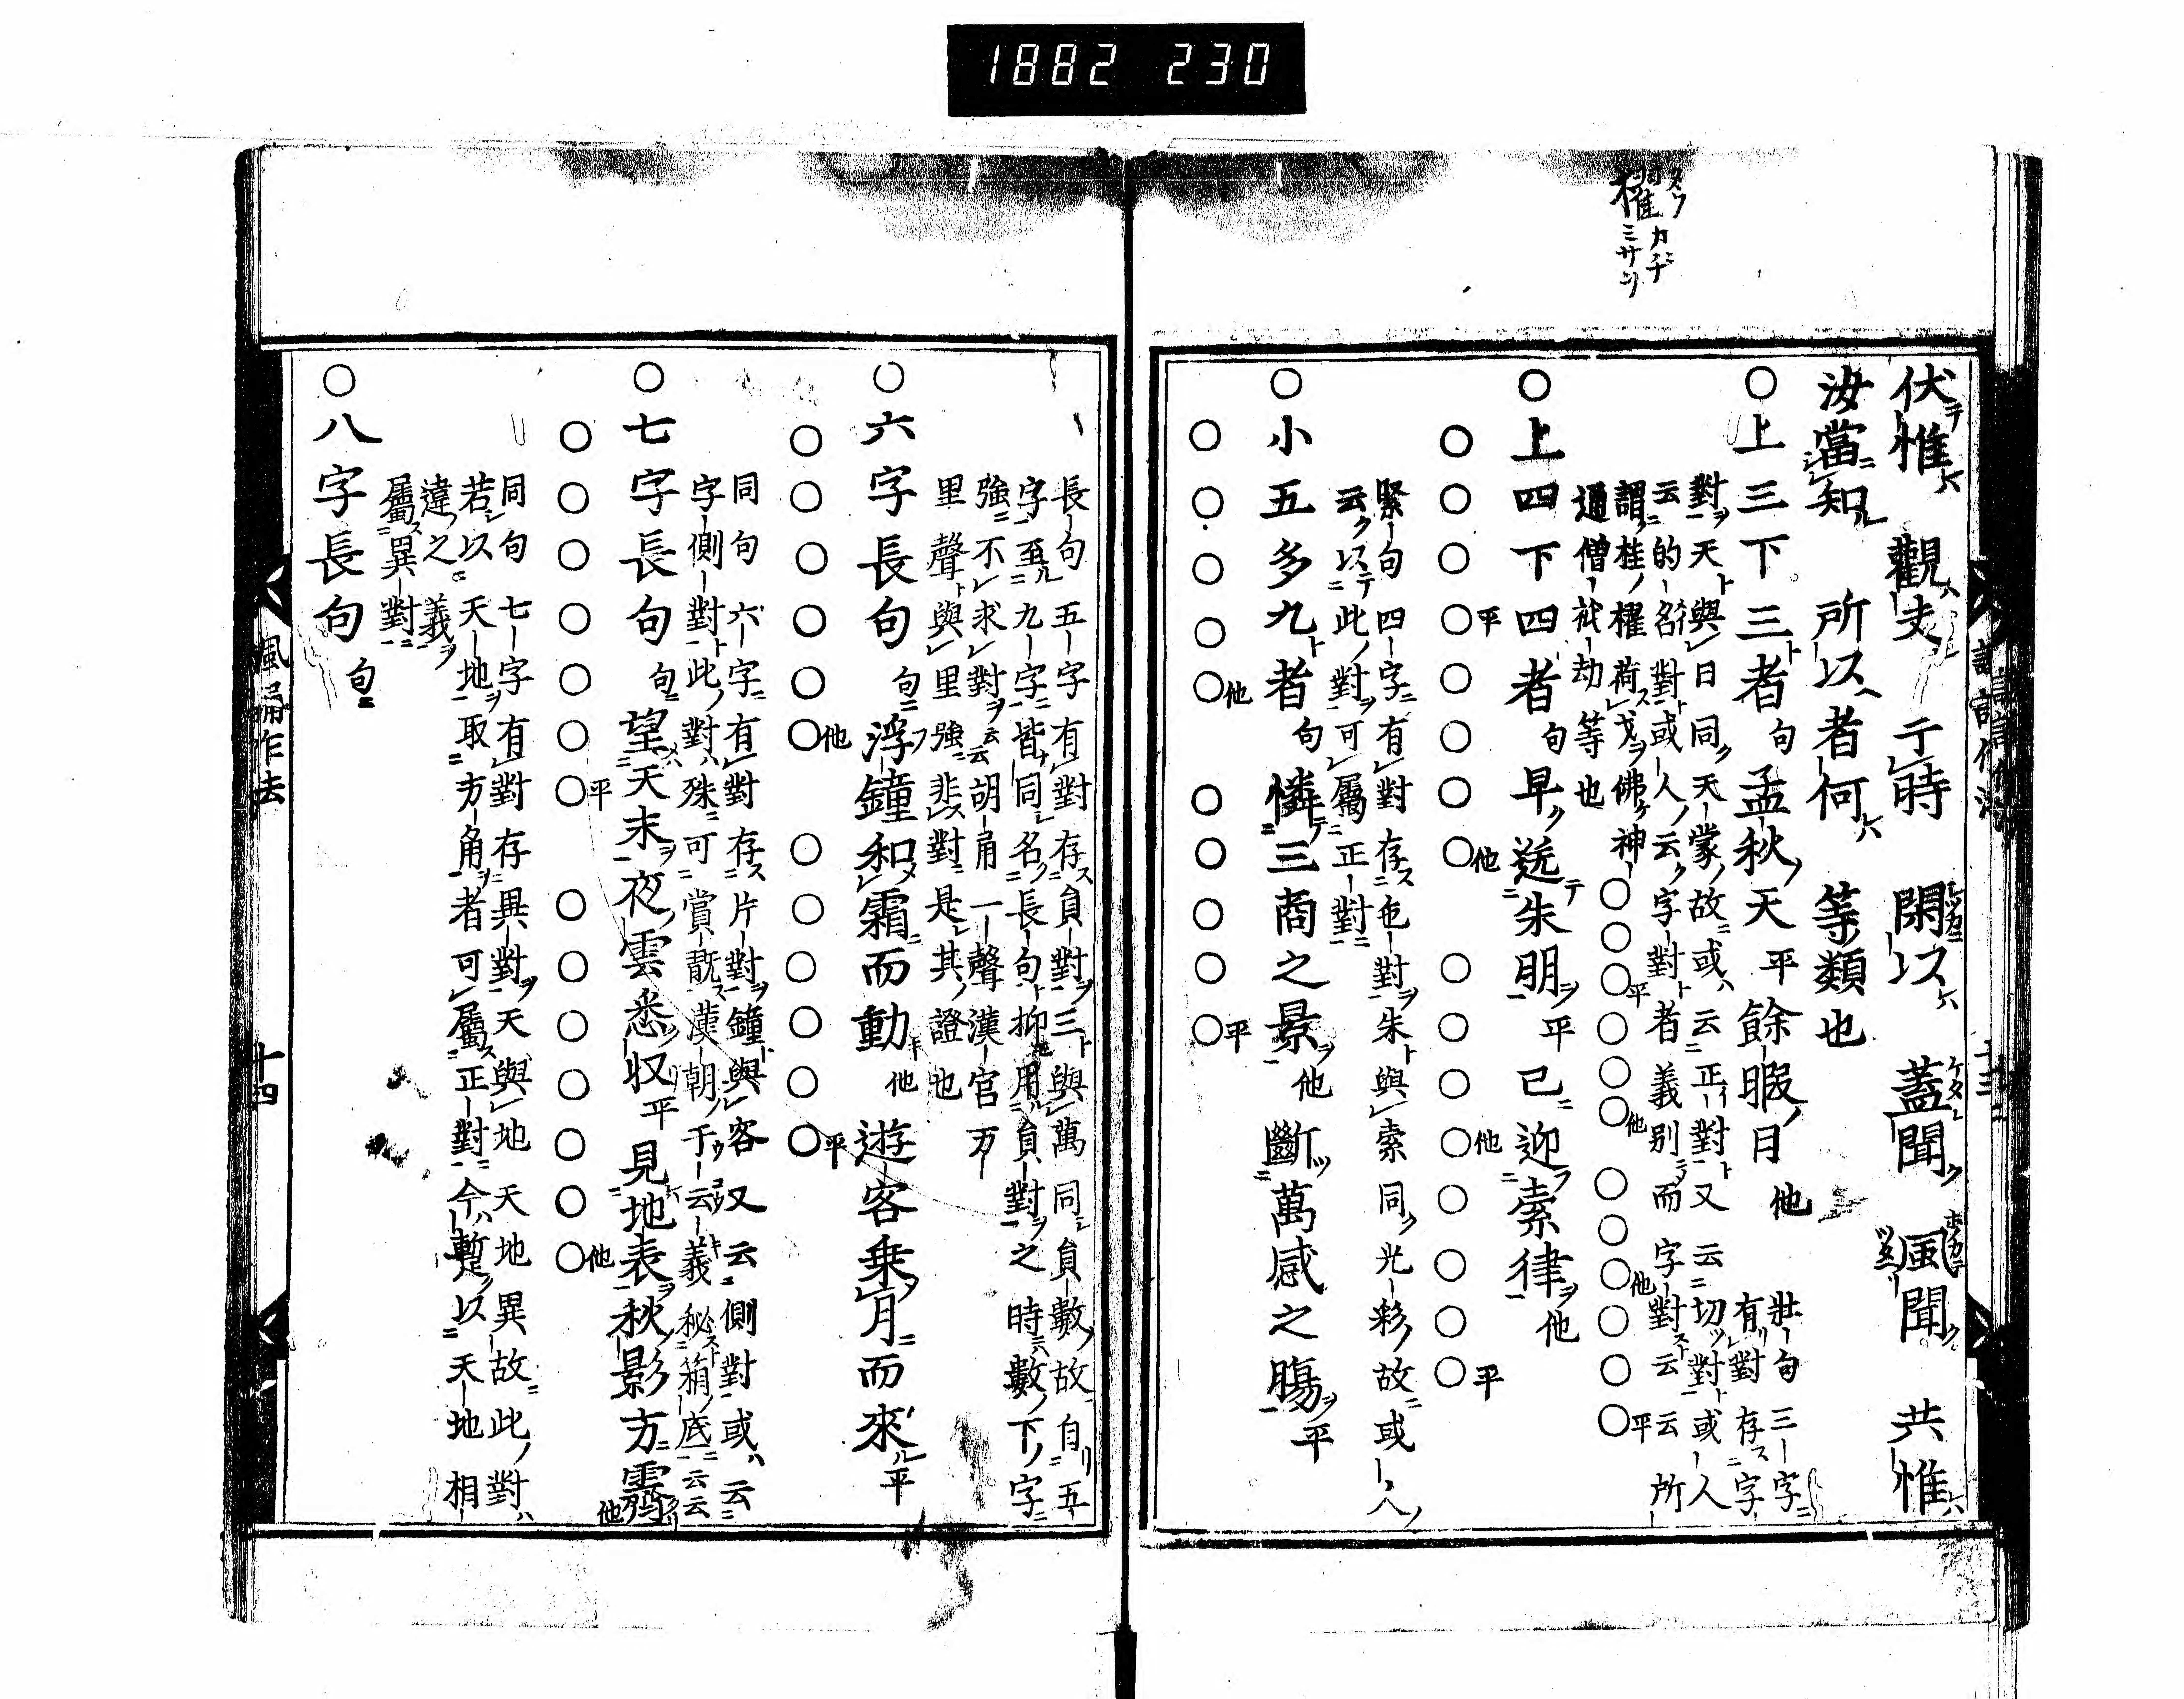 1882 230
櫂
伏惟 觀夫 于時 閑以 蓋聞 風聞 共惟
汝當知 所以者何 等類也
○上三下三者 句 孟秋天 平 餘暇日 他 壯句三字
有對存字
對天與日同天蒙故或云正對又云切對或人
云的名對或人云字對者義別而字對云云所
謂桂櫂荷戈佛神○○○平○○○他 ○○○他○○○平
通僧祇劫等也
○上四下四者 句 早送朱明 平 已迎素律 他
○○○○平○○○○他 ○○○○他○○○○平
緊句四字有對存色對朱與素同光彩故或人
云以此對可屬正對
○小五多九者 句 憐三商之景 他 斷萬感之腸 平
○○○○○他 ○○○○○平
長句五字有對存員對三與萬同員數故自五
字至九字皆同名長句抑用員對之時數下字
強不求對云云胡角一聲漢宮万
里聲與里強非對是其證也
○六字長句 句 浮鐘和霜而動 他 遊客乗月而來 平
○○○○○○他 ○○○○○○平
同句六字有對存片對鐘與客又云側對或云
字側對此對殊可賞翫漢朝于云義秘箱底云云
○七字長句 句 望天末夜雲悉収 平 見地表秋影方霽 他
○○○○○○○平 ○○○○○○○他
同句七字有對存異對天與地天地異故此對
若以天地取方角者可屬正對今暫以天地相
違之義
屬異對
○八字長句 句
諷誦作法
十四